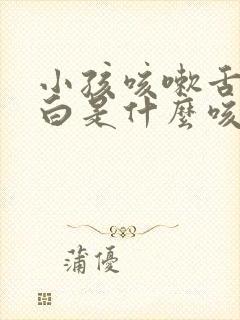 小孩咳嗽舌
白是什麼咳
蒲優